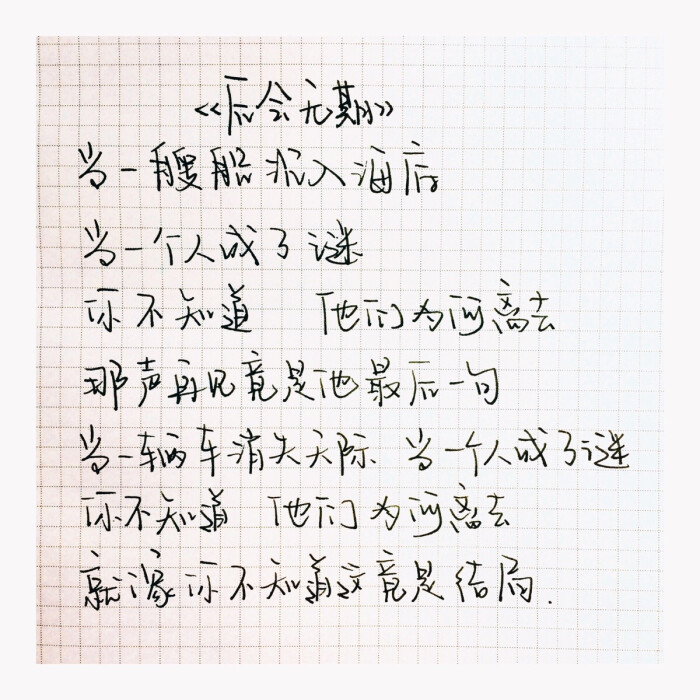 《后会无期》
当一艘船沉入海底
当一个人成了谜
你不知道 他们为何离去
那声再见竟是他最后一句
当一辆车消失天际 当一个人成了谜
你不知道 他们为何离去
就像你不知道这竟是结局.